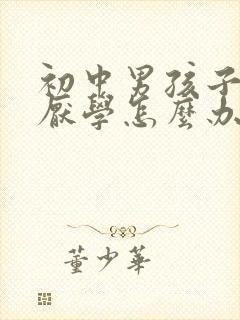 初中男孩子
厭學怎麼办
董少華